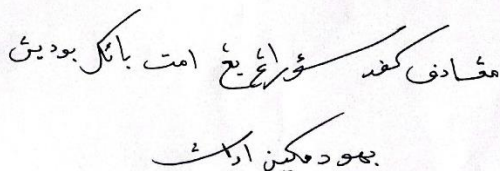 مڠادف کفد سؤراڠ يڠ امت بائک بوديڽ
بهو دمکين اداڽ